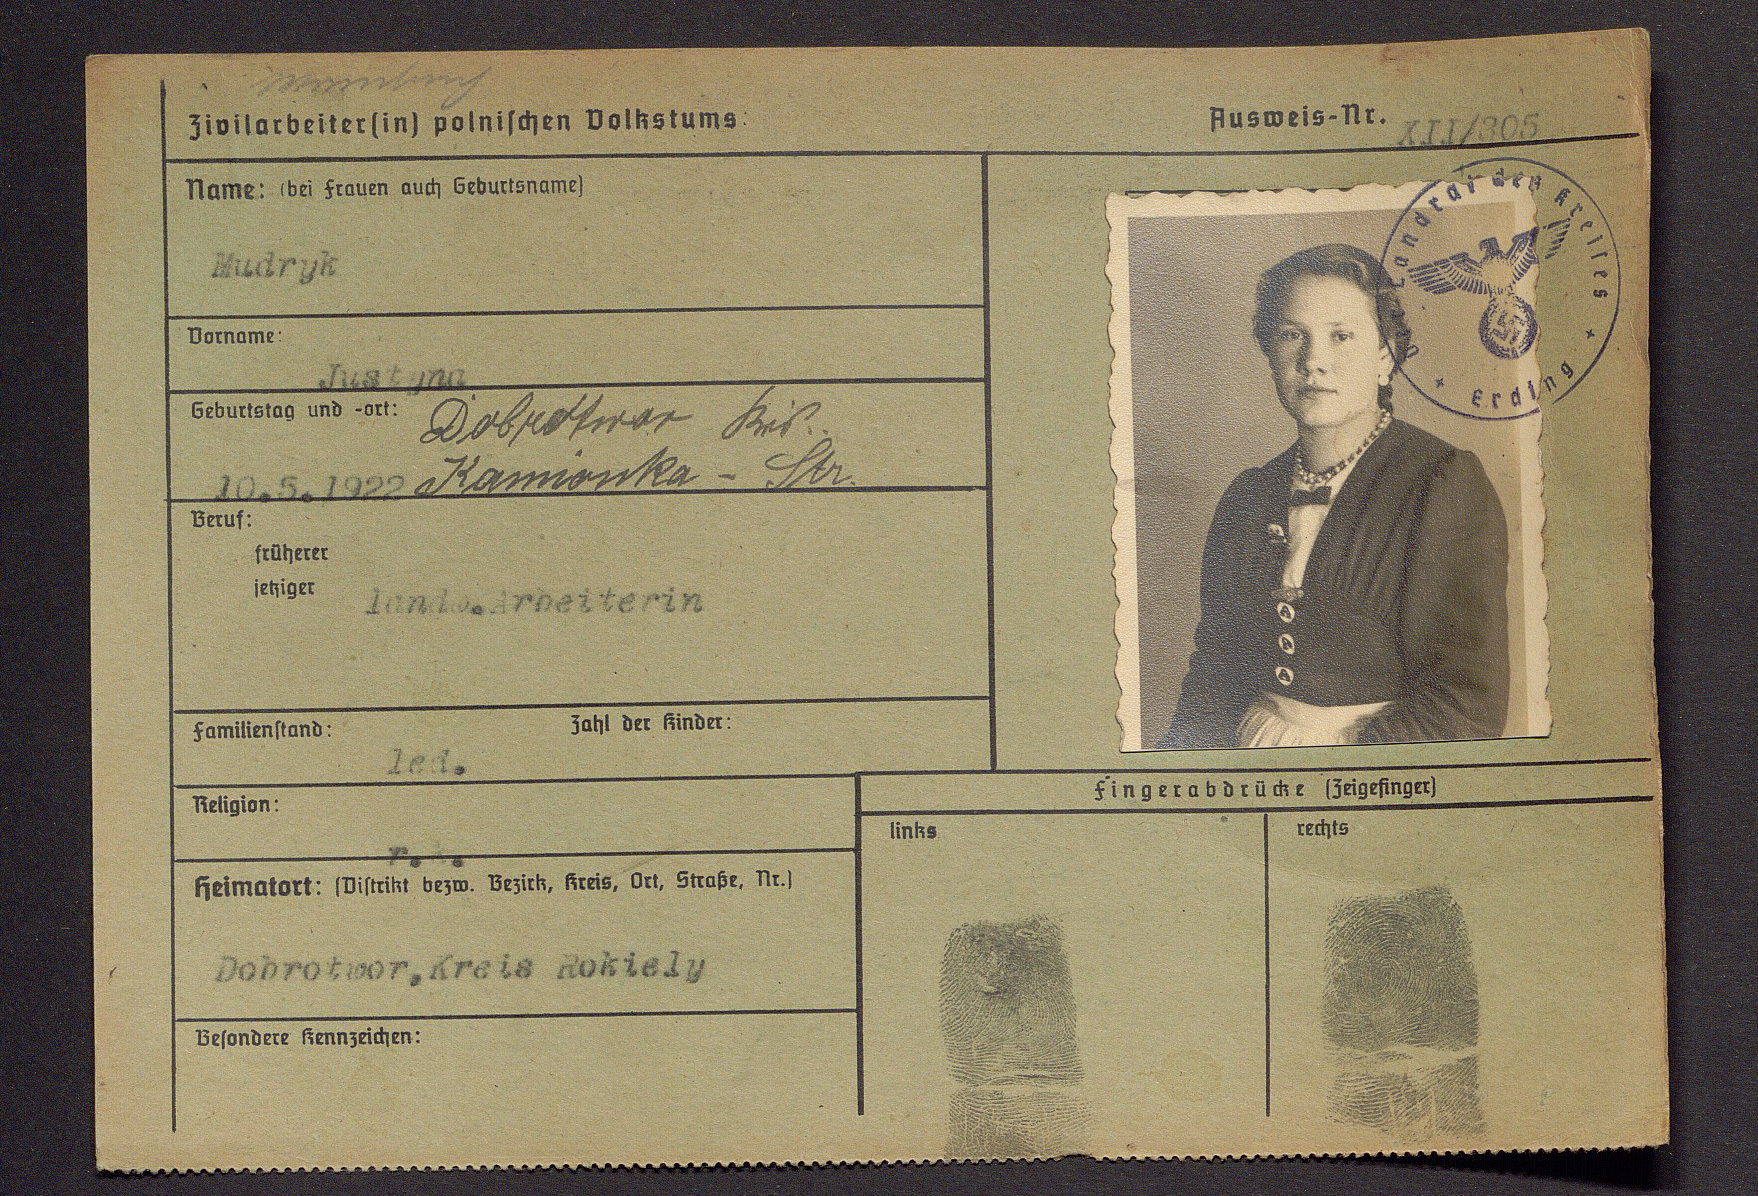 Zivilarbeiter(in) polnischen Volkstums:
Ausweis-Nr. XII/305
Name: (bei Frauen auch Geburtsname)
Mudryk
Vorname:
Justyna
Geburtstag und -ort: Dobrotwor Krs.
10.5.1922 Kamionka - Str.
Beruf:
früherer
jetziger landw.Arbeiterin
Familienstand: Zahl der Kinder:
led.
Religion:
Heimatort: (Distrikt bezw. Bezirk, Kreis, Ort, Straße, Nr.)
Dobrotwor,Kreis Rokiely
Besondere Kennzeichen:
Der Landrat des Kreises
Erding
Fingerabdrücke (Zeigefinger)
links rechts